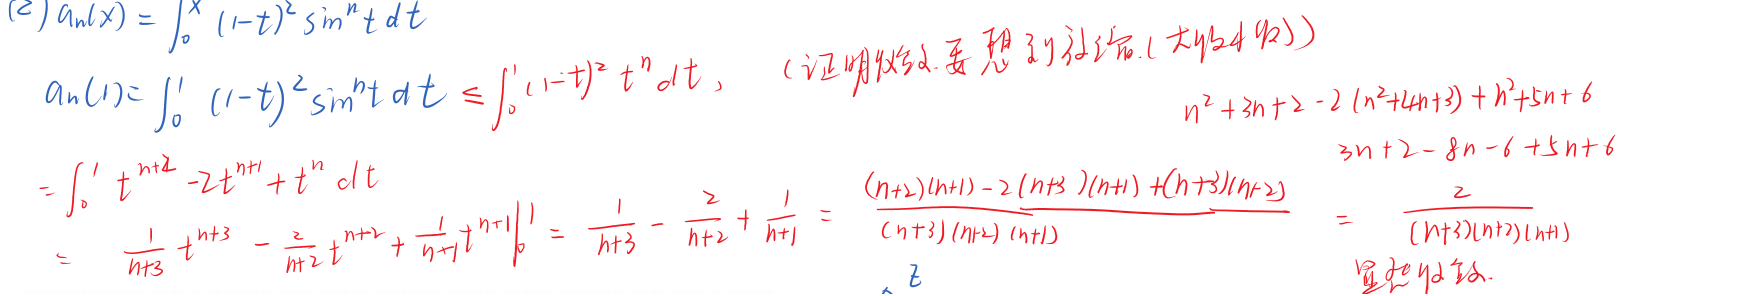 (2) aₙ(x) = ∫₀ˣ (1-t)² sinⁿt dt
aₙ(1) = ∫₀¹ (1-t)² sinⁿt dt ≤ ∫₀¹ (1-t)² tⁿ dt , (证明收敛.要想到放缩.(大收小收))
n²+3n+2-2(n²+4n+3)+n²+5n+6
3n+2-8n-6+5n+6
= ∫₀¹ tⁿ⁺² -2tⁿ⁺¹ + tⁿ dt
= 1/(n+3) tⁿ⁺³ - 2/(n+2) tⁿ⁺² + 1/(n+1) tⁿ⁺¹ |₀¹ = 1/(n+3) - 2/(n+2) + 1/(n+1) = ((n+2)(n+1)-2(n+3)(n+1)+(n+3)(n+2))/((n+3)(n+2)(n+1)) = 2/((n+3)(n+2)(n+1))
显然收敛.